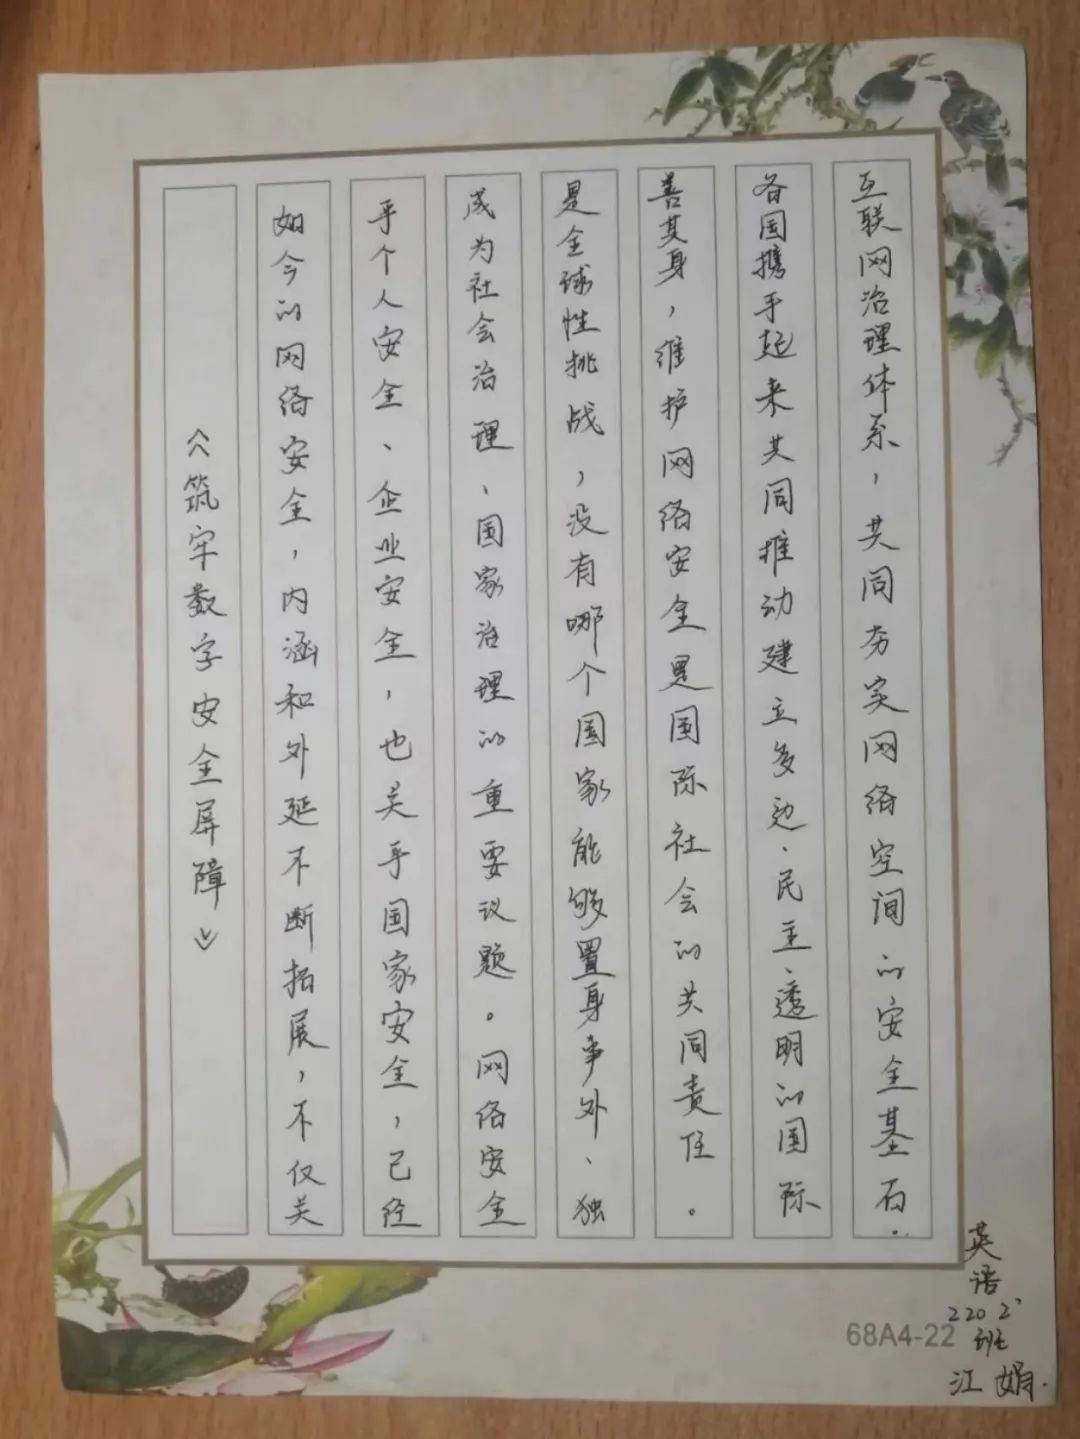 《筑牢数字安全屏障》
如今的网络安全，内涵和外延不断拓展，不仅关
乎个人安全、企业安全，也关乎国家安全，已经
成为社会治理、国家治理的重要议题。网络安全
是全球性挑战，没有哪个国家能够置身事外、独
善其身，维护网络安全是国际社会的共同责任。
各国携手起来共同推动建立多边、民主、透明的国际
互联网治理体系，共同夯实网络空间的安全基石.
英语
2202
班
江娟.
68A4-22